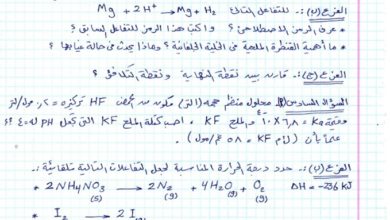 الفرع (ب):- للتفاعل التالي Mg + 2H⁺ → Mg + H₂
* عرف الرمز الاصطلاحي؟ واكتب هذا الرمز للتفاعل السابق؟
* ما أهمية القنطرة الملحية في الخلية الجلفانية؟ وماذا يحدث في حالة غيابها؟
الفرع (ج):- قارن بين نقطة النهاية ونقطة التكافؤ؟
السؤال السادس (أ) محلول منظم حجمه (لتر) مكون من حمض HF تركيزه = مول/لتر
Ka = ٦,٨ × ١٠⁻⁴ والملح KF. احسب كتلة الملح KF التي تجعل PH له = ٤؟
علماً بأن (KF = ٥٨ غم/مول).
الفرع (ب):- حدد درجة الحرارة المناسبة لجعل التفاعلات التالية تلقائية:
* 2NH4NO3 (s) → 2N2 (g) + 4H2O (g) + O2 (g) ΔH = -236 KJ
* I2 → 2 I